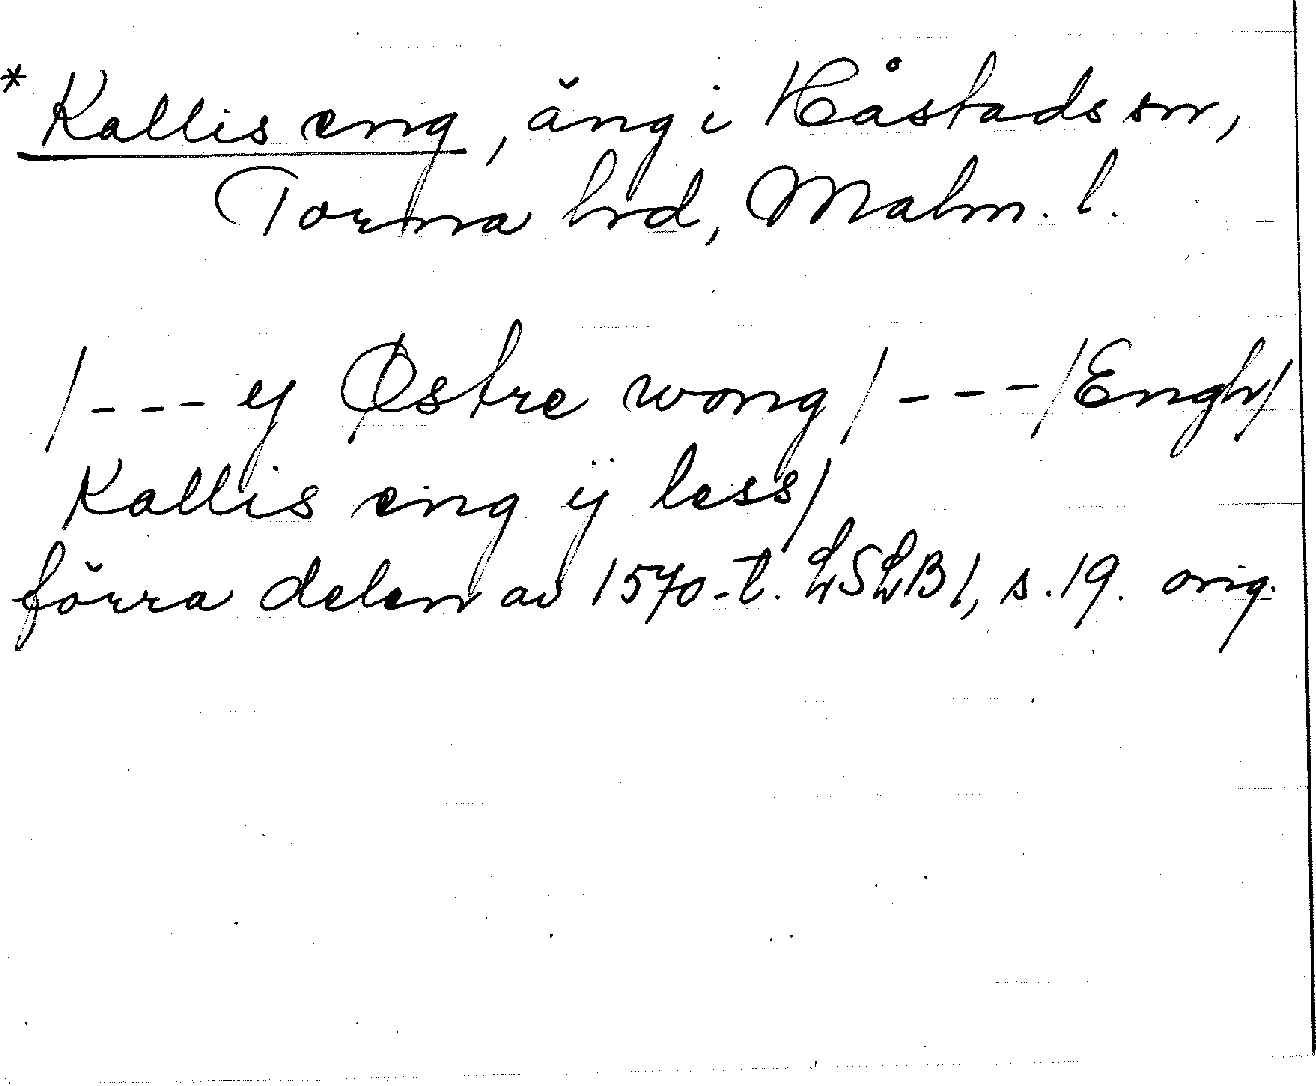 * Kallis eng, äng i Håstads sn,
Torna hrd, Malm. l.
/--- y Østre wong /---/ Engh/
Kallis eng ij less/
förra delen av 1570-t. LSLB 1, s. 19. orig.